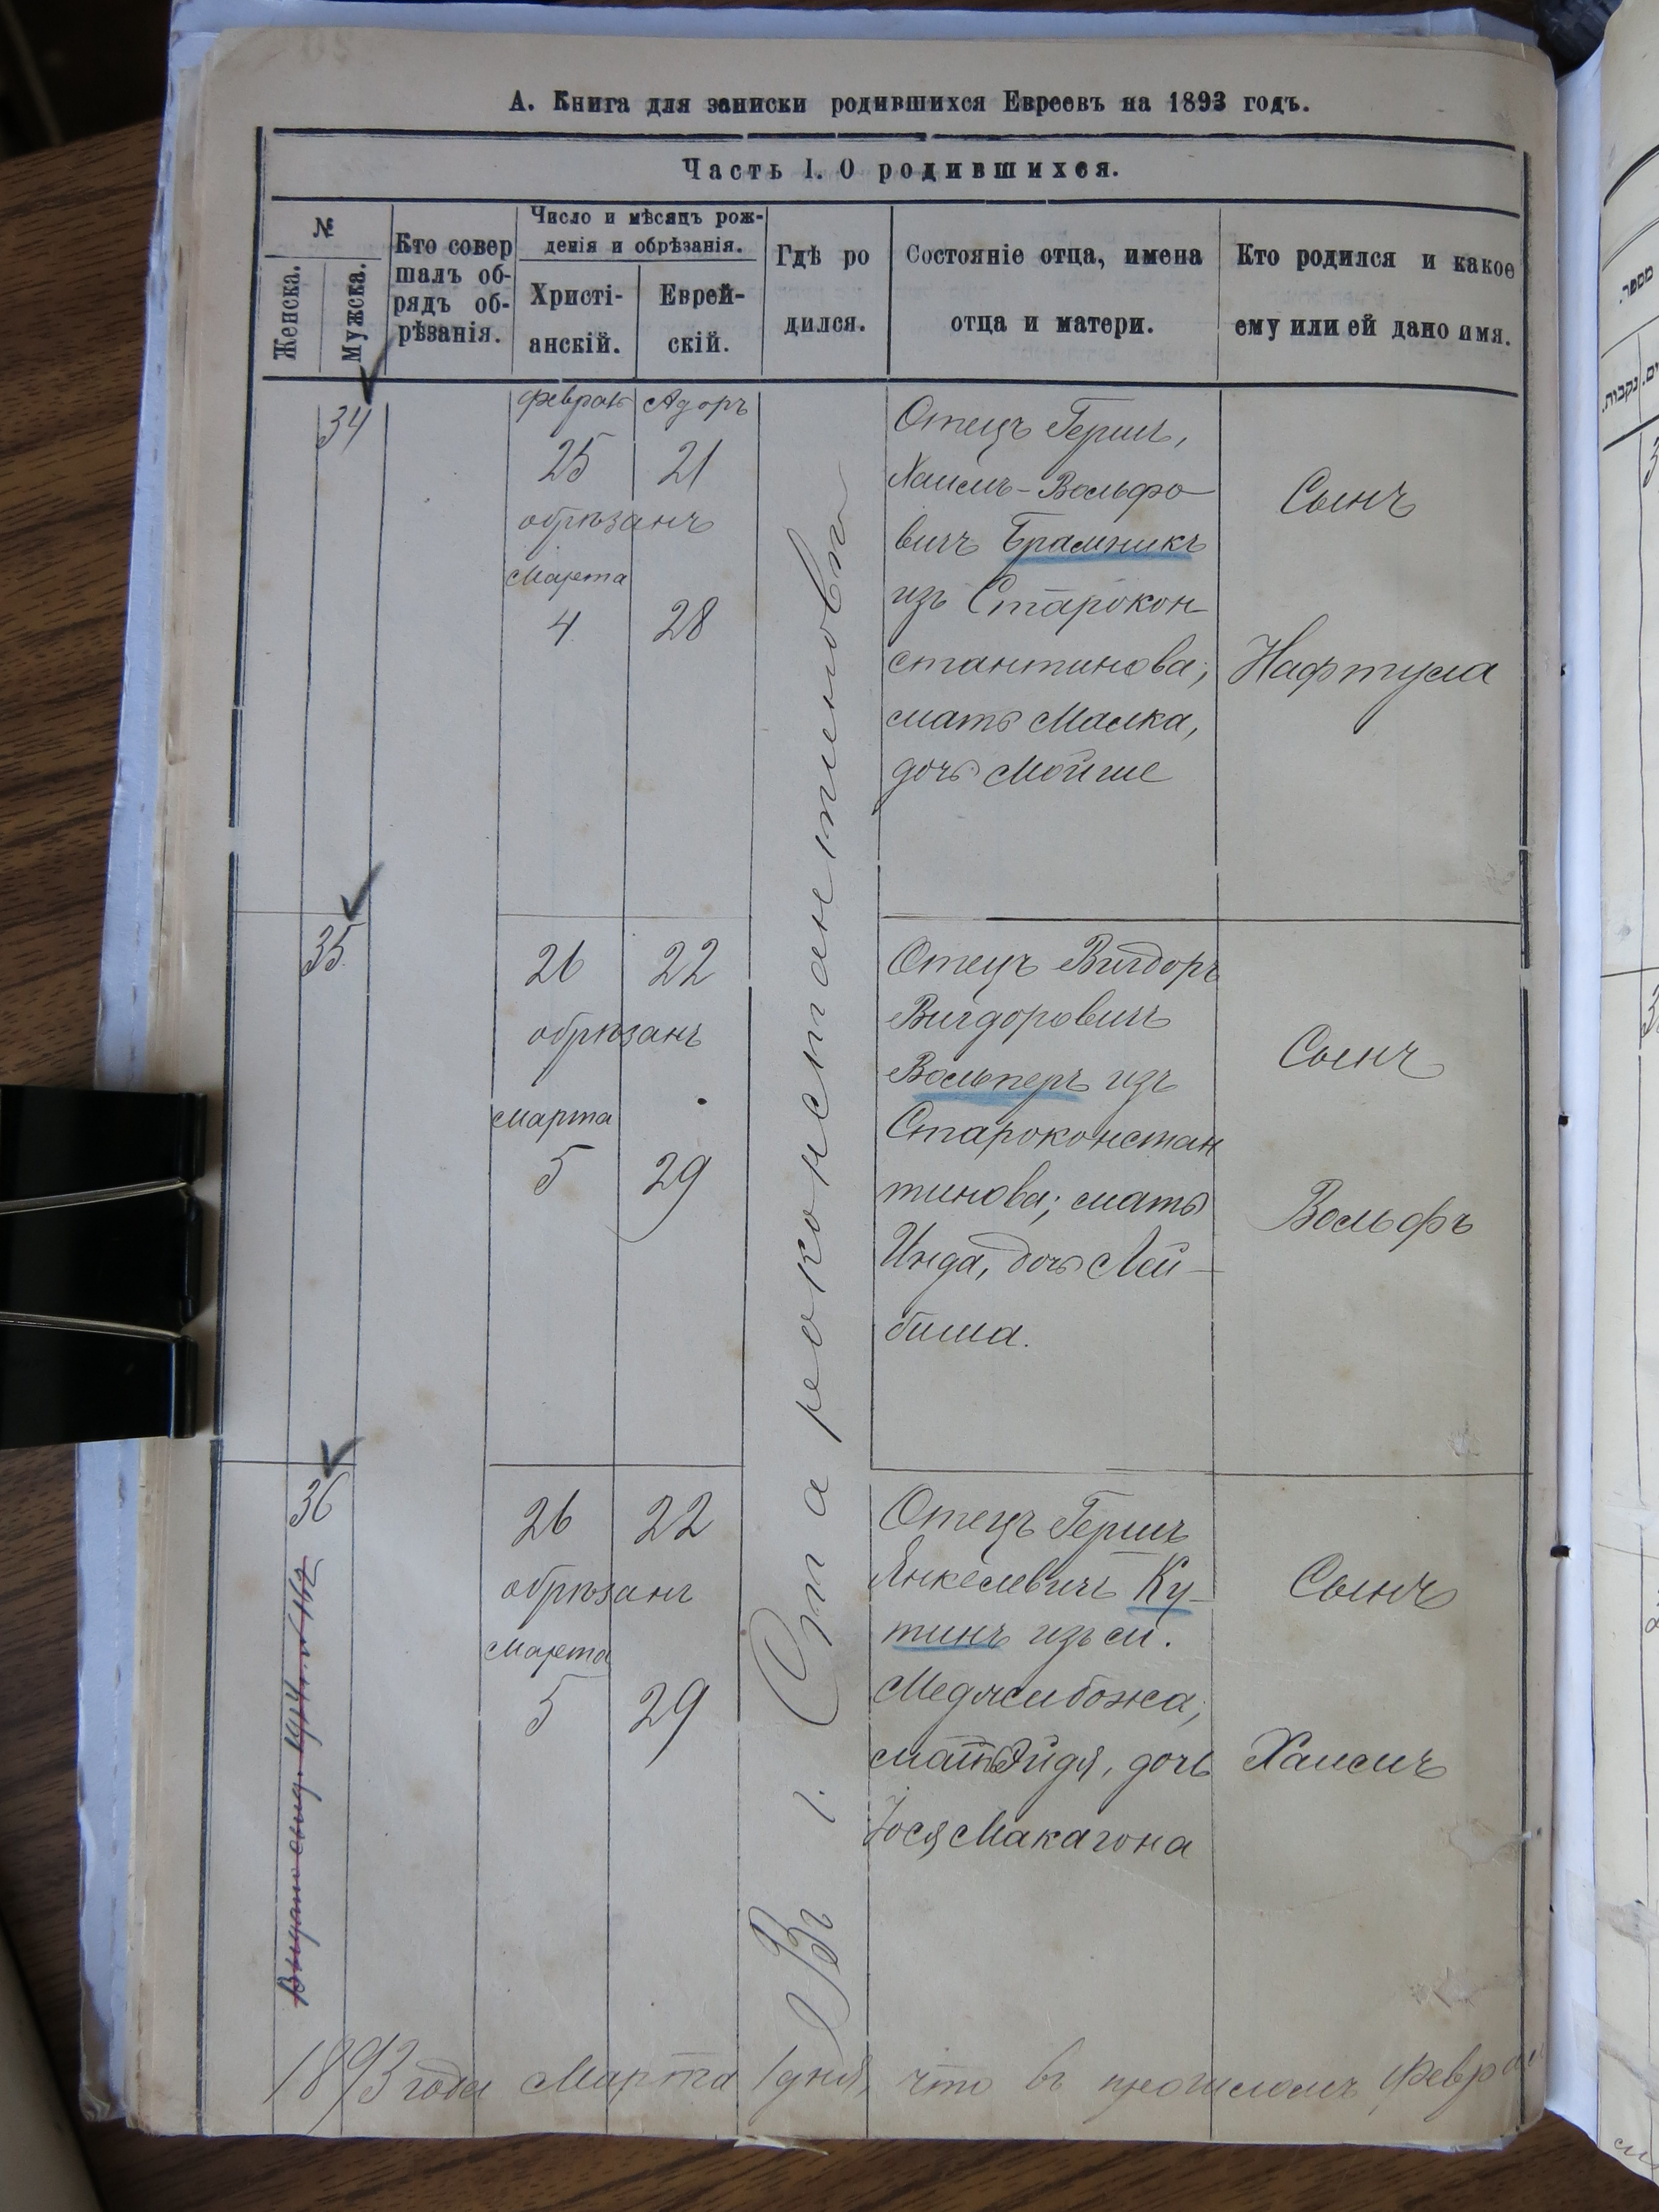 А. Книга для записки родившихся Евреевъ на 1893 годъ.
Часть I. О родившихся.
№
Женска.
Мужска.
Кто совер
шалъ об-
рядъ об-
рѣзанія.
Число и мѣсяцъ рож-
денія и обрѣзанія.
Христі-
анскій.
Еврей-
скій.
Гдѣ ро
дился.
Состояніе отца, имена
отца и матери.
Кто родился и какое
ему или ей дано имя.
34
Феврал
25
Адоръ
21
обрѣзанъ
Марта
4
28
Отецъ Гершъ,
Хаимъ-Вольфо
вичъ Брамникъ
изъ Старокон
стантинова;
мать Малка,
дочь Мойше
Сынъ
Нафтула
35
26
22
обрѣзанъ
Марта
5
29
Отецъ Вигдоръ
Вигдоровичъ
Вольперъ изъ
Староконстан
тинова; мать
Инда, дочь Лей-
биша.
Сынъ
Вольфъ
36
26
22
обрѣзанъ
Марта
5
29
Отецъ Гершъ
Янкелевичъ Ку-
тинъ изъ м.
Меджибожа;
мать Эйдя, дочь
Іося Макагона
Сынъ
Хаимъ
Въ г. Староконстантиновѣ
1893 года Марта 1 дня, что въ прошломъ Феврал